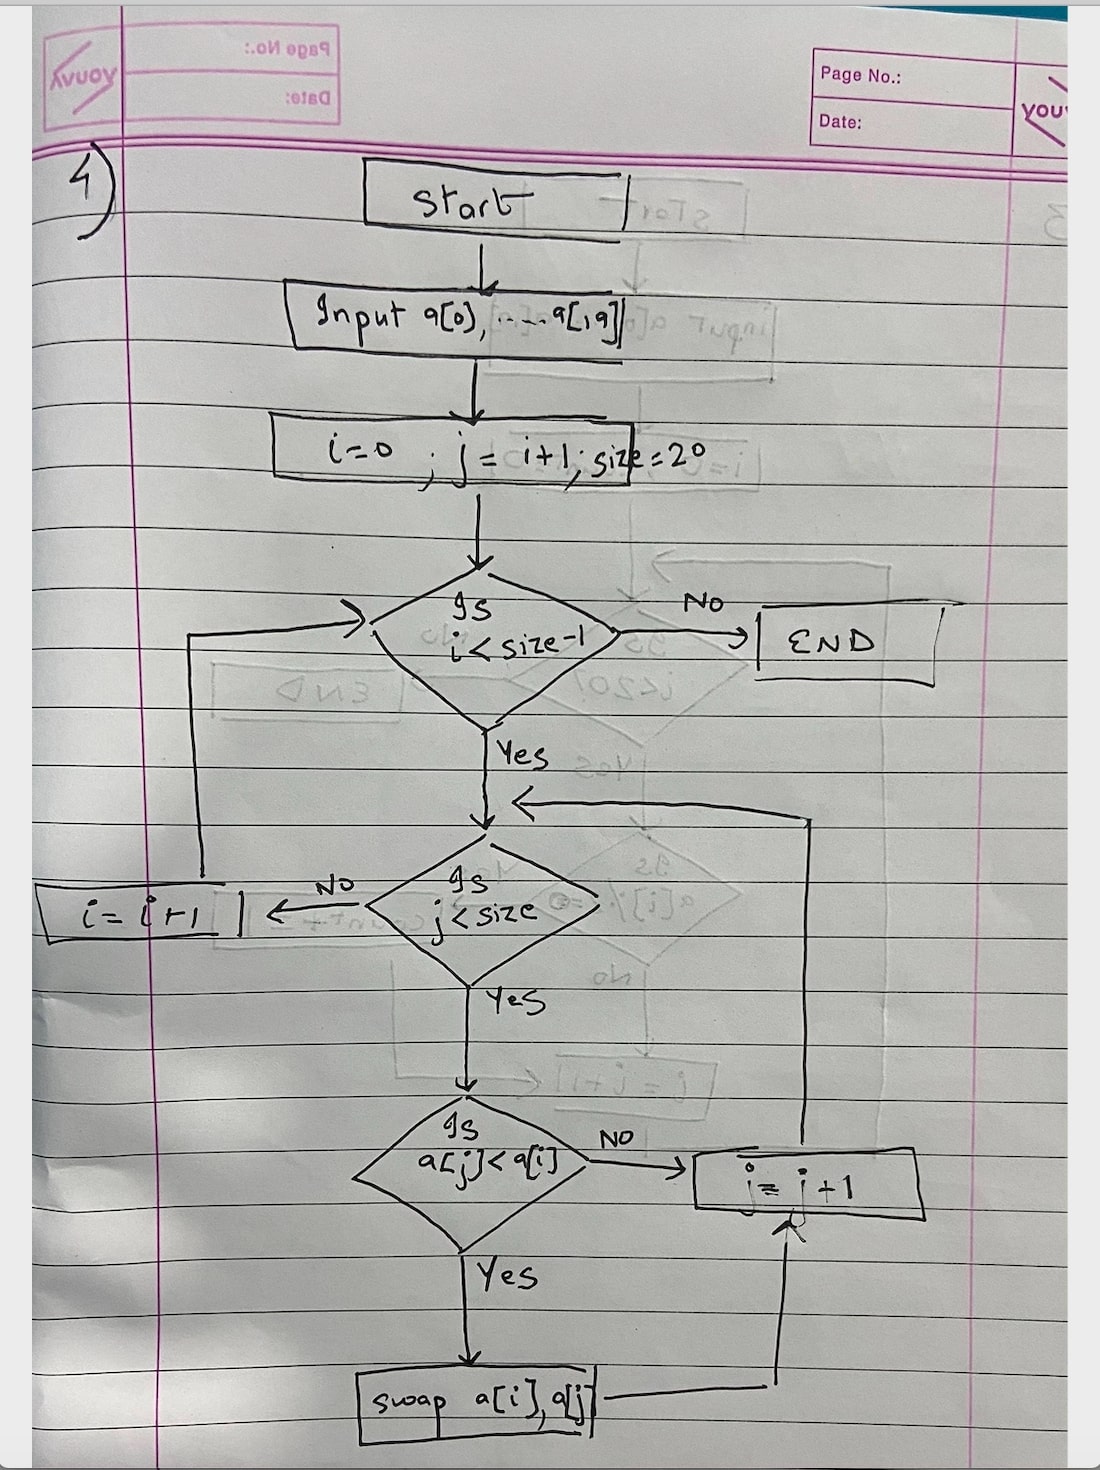 Page No.:
Date:
Page No.:
Date:
YOUVA
4)
Start
Input a[0], ..... a[19]
i=0 ; j = i+1; size=20
Is
i < size-1
No
END
Yes
Is
j < size
No
i = i+1
Yes
Is
a[j] < a[i]
NO
j = j+1
Yes
swap a[i], a[j]